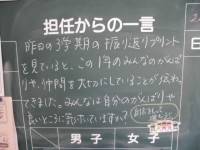 担任からの一言
昨日の3学期の振り返りプリント
を見ていると、この1年のみんなのがんば
りや、仲間を大切にしていることが伝わっ
てきました。みんなは自分のがんばりや
良いところに気づいていますか?
男子 女子
日